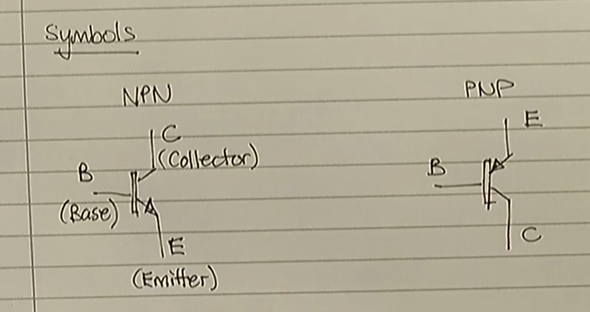 Symbols
NPN
PNP
C
(Collector)
B
(Base)
E
(Emitter)
E
B
C